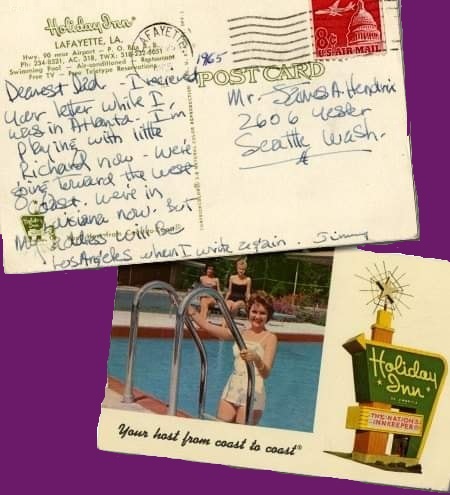 Holiday Inn
LAFAYETTE, LA.
Hwy. 90 near Airport - P. O. Box
Ph: 234-8521, AC: 318, TWX:
Swimming Pool - Air-conditioned - Restaurant
Free TV - Free Teletype Reservations
LAFAYETTE
1965
8¢
U.S. AIR MAIL
POST CARD
Dearest Dad. I recieved
your letter while I
was in Atlanta. I'm
playing with little
Richard now. We're
going toward the west
coast. We're in
Louisiana now. But
My address will be
Los Angeles when I write again. Jimmy
Mr. James A. Hendrix
2606 Yesler
Seattle Wash.
Holiday
Inn
OF AMERICA
THE NATION'S
INNKEEPER
Your host from coast to coast®